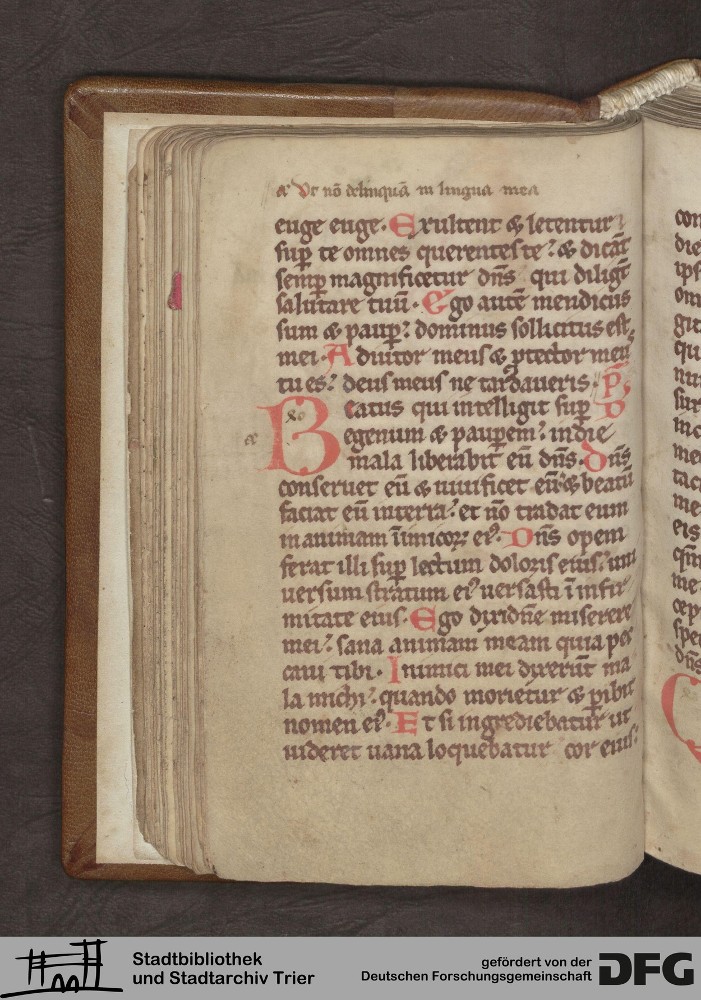 a Vt nō delinquā in lingua mea
euge euge. Exultent & letentur
sup te omnes querentes te? & dicāt
semp magnificetur dn̄s qui diligt̄
salutare tuū. Ego autē mendicus
sum & paup? dominus sollicitus est
mei. Adiutor meus & ptector meu
tu es? deus meus ne tardaueris. p̄
Beatus qui intelligit sup
egenum & paupem? in die
mala liberabit eū dn̄s. Dn̄s
conseruet eū & uiuificet eū & beatū
faciat eū in terra? et nō tradat eum
in animam īimicoꝝ ei⁹. Dn̄s opem
ferat illi sup lectum doloris eius? uni
uersum stratum ei⁹ uersasti ī infir
mitate eius. Ego dixi dn̄e miserere
mei? sana animam meam quia pec
caui tibi. Inimici mei dixerūt ma
la michi? quando morietur & pibit
nomen ei⁹. Et si ingrediebatur ut
uideret uana loquebatur cor eius
con
die
ips
om
git
qu
nu
sur
inc
me
tac
me
eis
qm̄
me
cep
spe
dn̄s
Stadtbibliothek
und Stadtarchiv Trier
gefördert von der
Deutschen Forschungsgemeinschaft
DFG